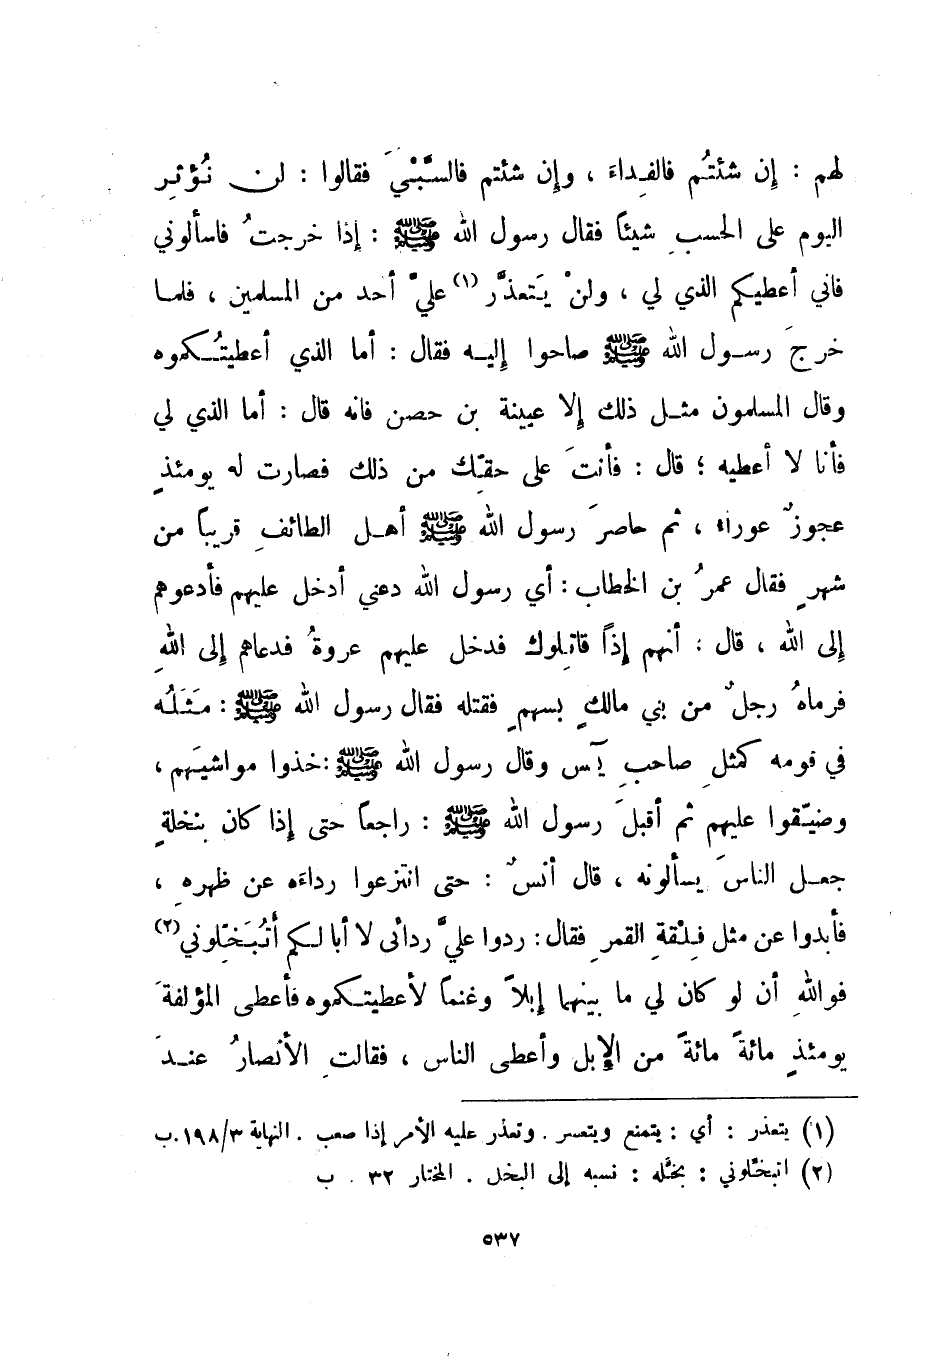 لهم : إن شئتُم فالفِداءَ ، وإن شئتم فالسَّبْيَ فقالوا : لن نُؤثِر
اليوم على الحسبِ شيئاً فقال رسول الله ﷺ : إذا خرجتُ فاسألوني
فاني أعطيكم الذي لي ، ولنْ يَتعذَّر (١) عليّ أحد من المسلمين ، فلما
خرجَ رسول الله ﷺ صاحوا إليه فقال : أما الذي أعطيتُكموه
وقال المسلمون مثل ذلك إلا عيينة بن حصن فانه قال : أما الذي لي
فأنا لا أعطيه ؛ قال : فأنتَ على حقِّك من ذلك فصارت له يومئذٍ
عجوزٌ عوراء ، ثم حاصرَ رسول الله ﷺ أهل الطائفِ قريباً من
شهرٍ فقال عمرُ بن الخطاب : أي رسول الله دعني أدخل عليهم فأدعوهم
إلى الله ، قال : أنهم إذاً قاتِلوك فدخل عليهم عروةُ فدعاهم إلى اللهِ
فرماهُ رجلٌ من بني مالكٍ بسهمٍ فقتله فقال رسول الله ﷺ : مَثَلُه
في قومه كمثلِ صاحبِ يآس وقال رسول الله ﷺ : خذوا مواشيَهم ،
وضيّقوا عليهم ثم أقبلَ رسول الله ﷺ : راجعاً حتى إذا كان بنخلةٍ
جعل الناسَ يسألونه ، قال أنسٌ : حتى انتزعوا رداءَه عن ظهرِه ،
فأبدوا عن مثل فِلْقةِ القمرِ فقال : ردوا عليَّ ردائى لا أبا لكم أتُبَخّلوني (٢)
فواللهِ أن لو كان لي ما بينهما إبلاً وغنماً لأعطيتكموه فأعطى المؤلفةَ
يومئذٍ مائةً مائةً من الإبل وأعطى الناس ، فقالتِ الأنصارُ عندَ
(١) يتعذر : أي : يتمنع ويتعسر . وتعذر عليه الأمر إذا صعب . النهاية ١٩٨/٣ . ب
(٢) اتبخّلوني : بخَّله : نسبه إلى البخل . المختار ٣٢ . ب
٥٣٧